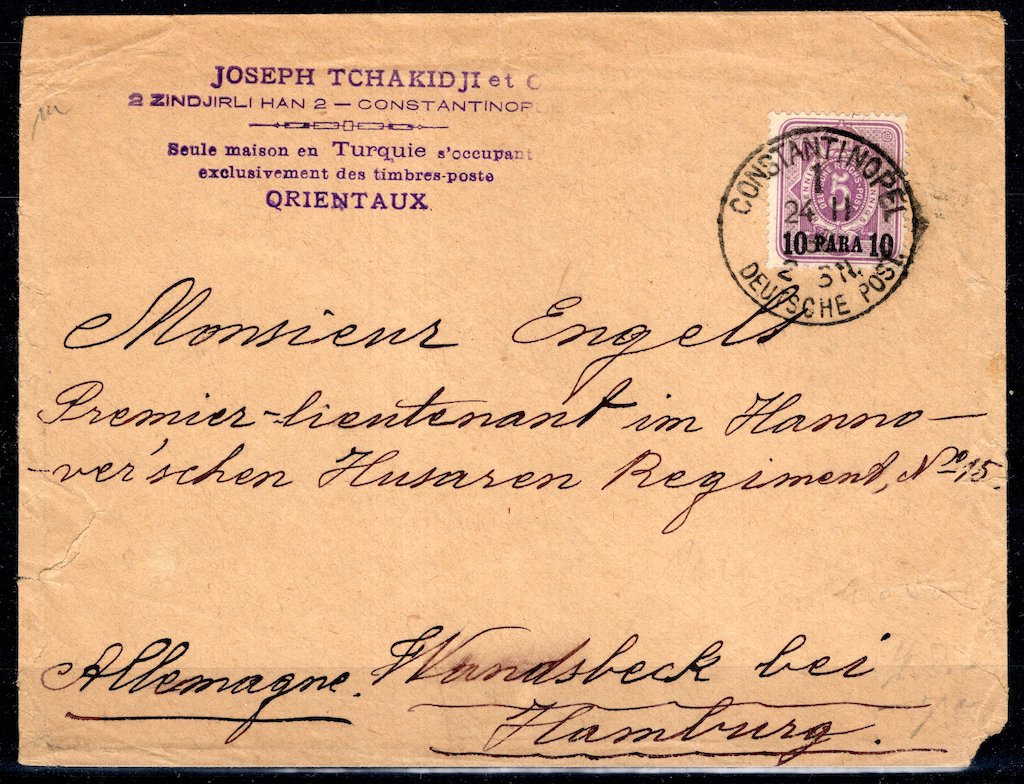 JOSEPH TCHAKIDJI et C
2 ZINDJIRLI HAN 2 — CONSTANTINOPLE
Seule maison en Turquie s'occupant
exclusivement des timbres-poste
ORIENTAUX
CONSTANTINOPEL
1
24 11
DEUTSCHE REICHS-POST
5
10 PARA 10
2 3 N.
DEUTSCHE POST.
Monsieur Engels
Premier-lieutenant im Hanno—
—ver'schen Husaren Regiment, No 15.
Allemagne. Wandsbeck bei
Hamburg.